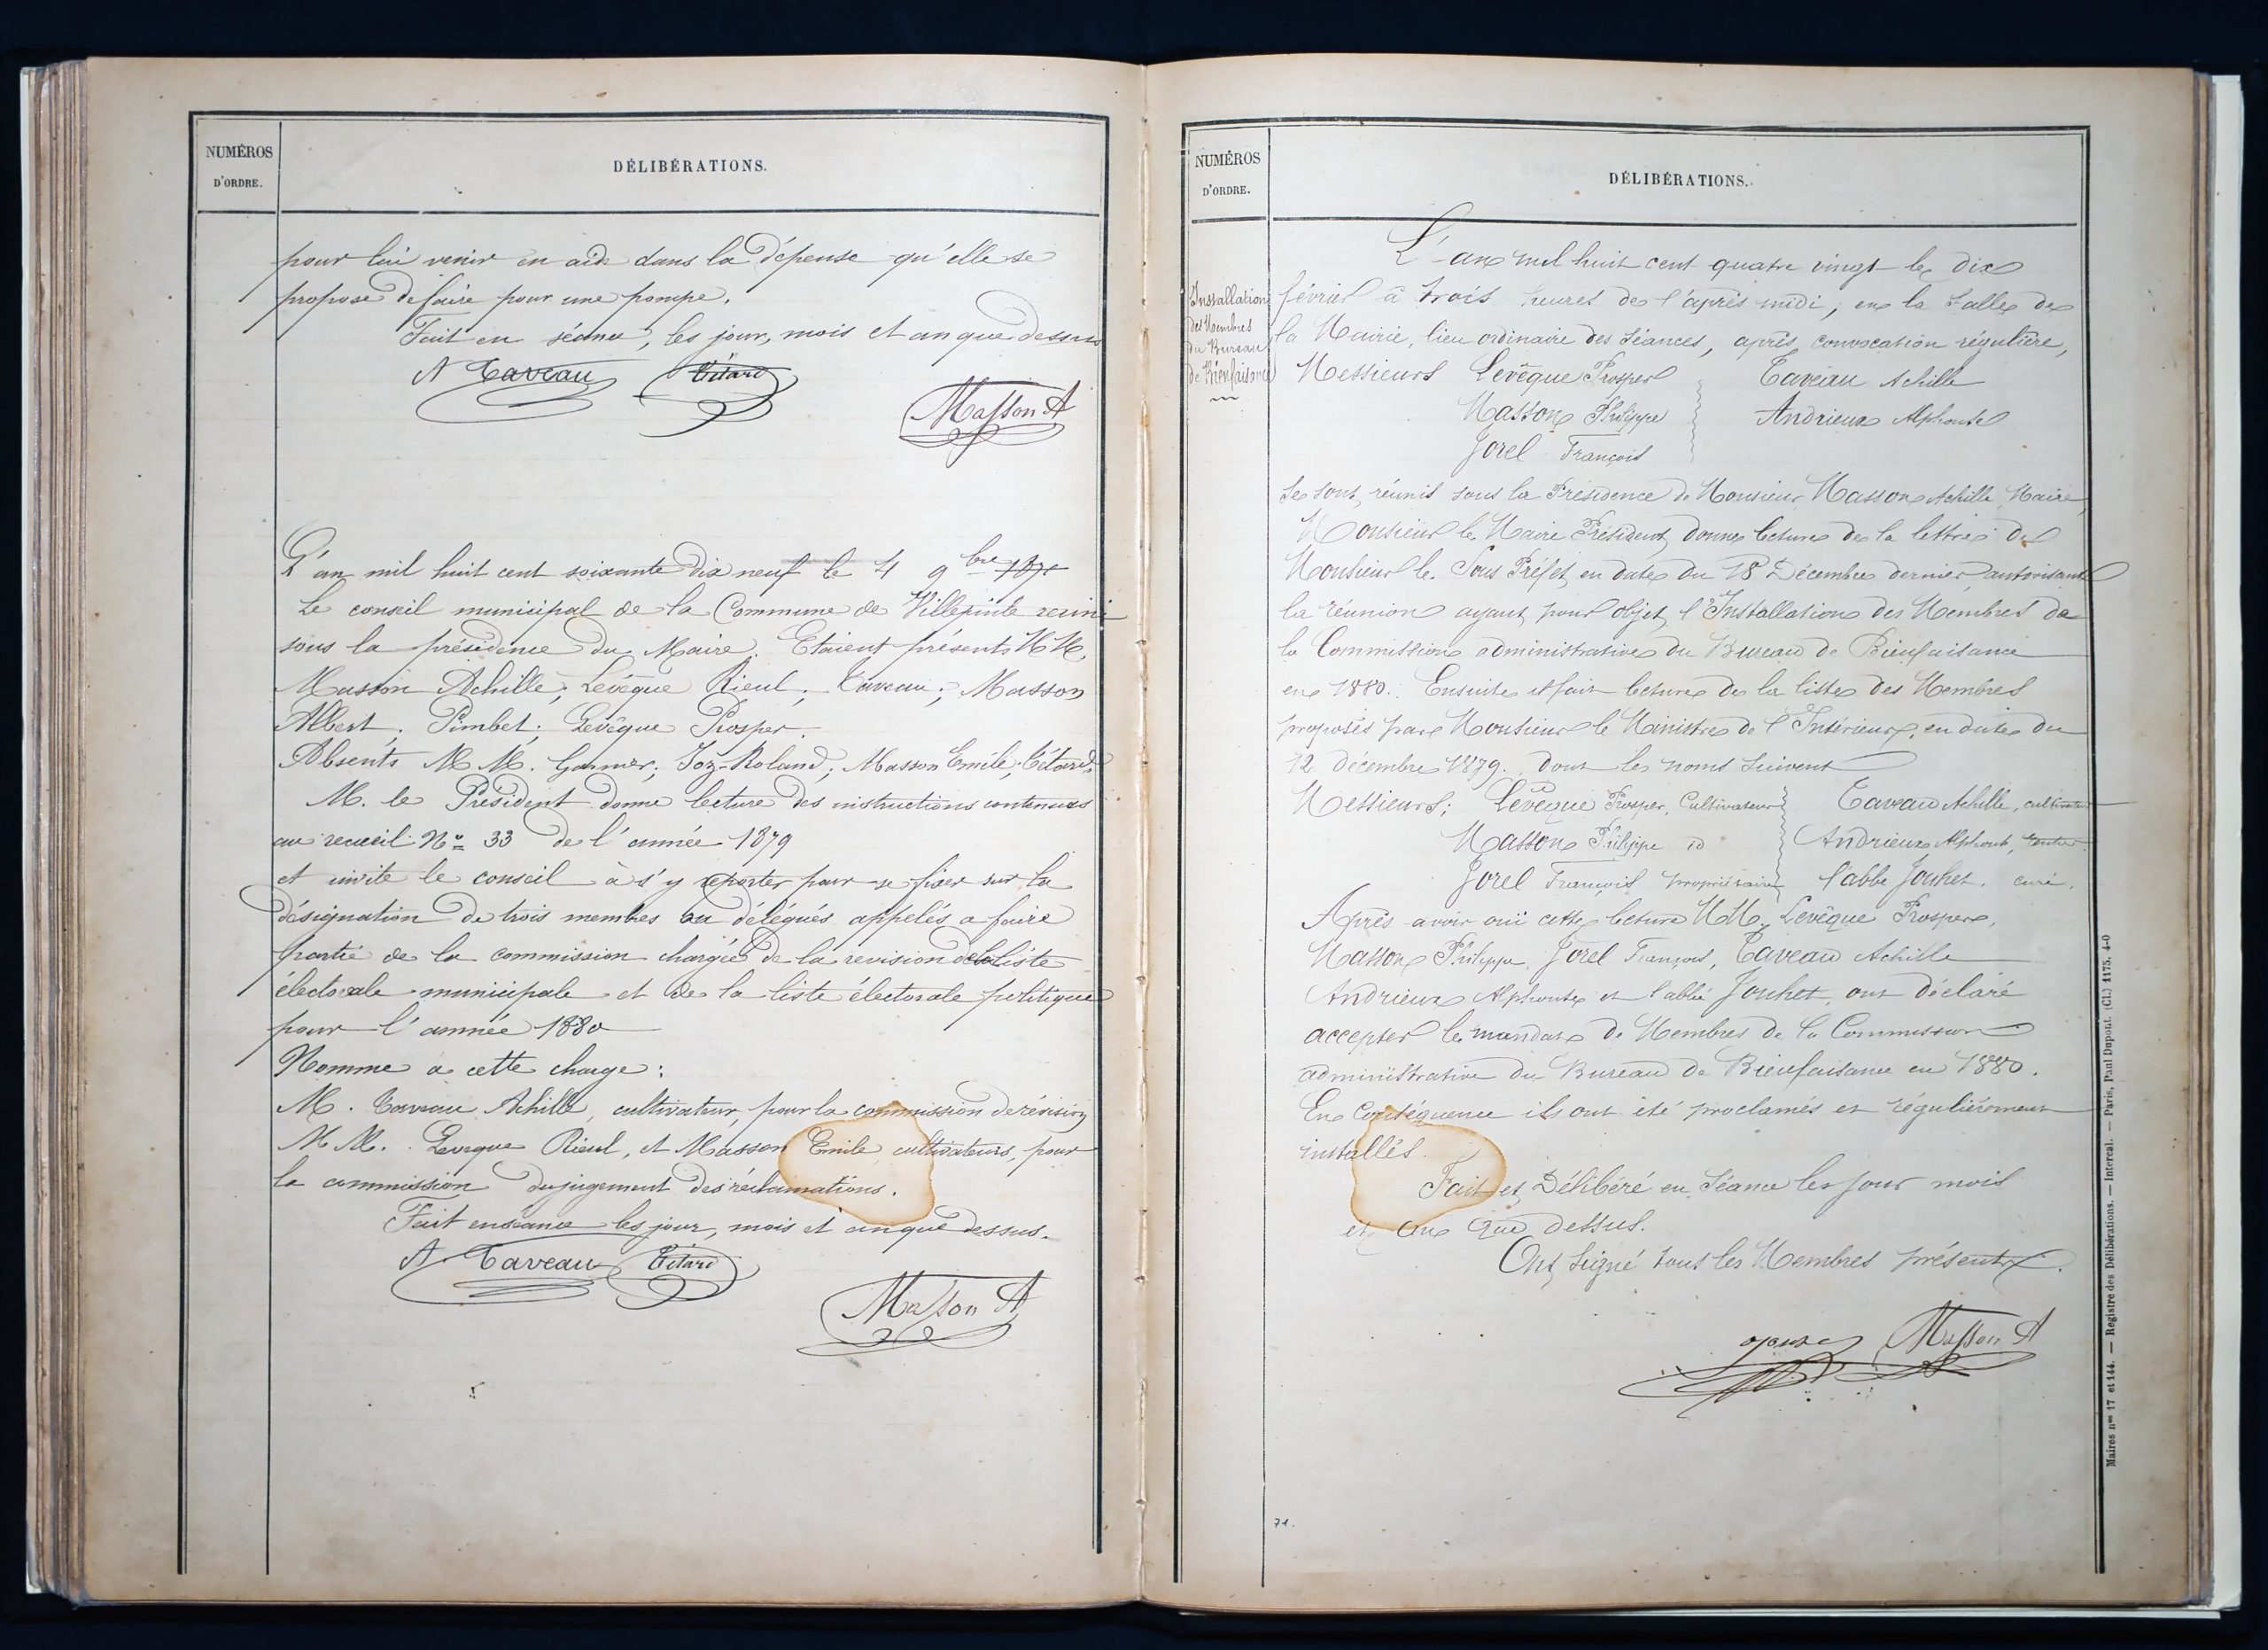 NUMÉROS
D'ORDRE.
DÉLIBÉRATIONS.
pour lui venir en aide dans la dépense qu'elle se
propose de faire pour une pompe.
Fait en séance, les jour, mois et an que dessus
A Taveau Tétard
Masson A
L'an mil huit cent soixante dix neuf le 4 9bre 187
Le conseil municipal de la Commune de Villepinte reuni
sous la présidence du Maire. Etaient présents MM.
Masson Achille; Levêque Rieul; Taveau; Masson
Albert; Pimbet; Levêque Prosper.
Absents M M. Garnier; Joz-Roland; Masson Emile; Tétard.
M. le Président donne lecture des instructions contenues
au recueil No 33 de l'année 1879
et invite le conseil à s'y reporter pour se fixer sur la
désignation de trois membres ou délégués appelés a faire
partie de la commission chargée de la revision de la liste
électorale municipale et de la liste électorale politique
pour l'année 1880
Nomme a cette charge:
M. Taveau Achille, cultivateur, pour la commission de révision
M M. Leveque Rieul, et Masson Emile cultivateurs, pour
la commission du jugement des réclamations.
Fait en séance les jour, mois et an que dessus.
A Taveau Tétard
Masson A
NUMÉROS
D'ORDRE.
DÉLIBÉRATIONS.
Installation
des Membres
du Bureau
de Bienfaisance
L'an mil huit cent quatre vingt le dix
février à trois heures de l'après midi, en la Salle de
la Mairie, lieu ordinaire des Séances, après convocation régulière,
Messieurs Levêque Prosper Taveau Achille
Masson Philippe Andrieux Alphonse
Jorel François
Se sont réunis sous la Présidence de Monsieur Masson Achille Maire,
Monsieur le Maire Président donne lecture de la lettre de
Monsieur le Sous Préfet en date du 18 Décembre dernier autorisant
la réunion ayant pour objet l'Installation des Membres de
la Commission administrative du Bureau de Bienfaisance
en 1880. Ensuite il fait lecture de la liste des Membres
proposés par Monsieur le Ministre de l'Intérieur, en date du
12 décembre 1879. dont les noms suivent
Messieurs; Levêque Prosper, Cultivateur Taveau Achille, cultivateur
Masson Philippe id Andrieux Alphonse, rentier
Jorel François propriétaire l'abbé Jouhet, curé.
Après avoir ouï cette lecture MM. Levêque Prosper,
Masson Philippe, Jorel François, Taveau Achille
Andrieux Alphonse et l'abbé Jouhet, ont déclaré
accepter le mandat de Membres de la Commission
administrative du Bureau de Bienfaisance en 1880.
En Conséquence ils ont été proclamés et régulièrement
installés.
Fait et Délibéré en Séance les jour mois
et an que dessus.
Ont Signé tous les Membres présents.
Masson A
71.
Maires nos 17 et 144. — Registre des Délibérations. — Intercal. — Paris, Paul Dupont. (Cl.) 1175. 4-0